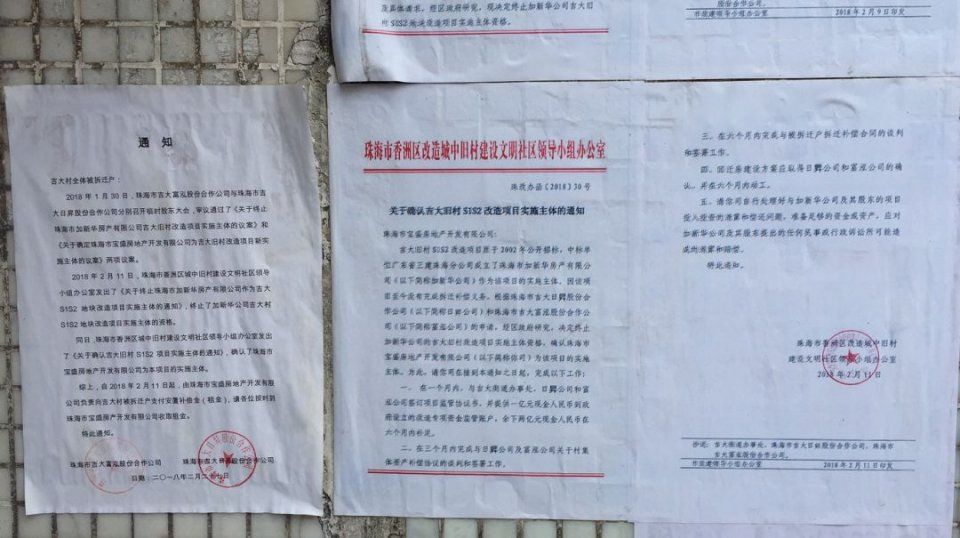 及具体请求，经区政府研究，现决定终止加新华公司吉大旧
村S1S2地块改造项目实施主体资格。
股份合作公司。
2018年2月9日印发
通 知
吉大村全体被拆迁户：
2018年1月30日，珠海市吉大富泓股份合作公司与珠海市吉
大日昇股份合作公司分别召开临时股东大会，审议通过了《关于终止
珠海市加新华房产有限公司吉大旧村改造项目实施主体的议案》和
《关于确定珠海市宝盛房地产开发有限公司为吉大旧村改造项目新实
施主体的议案》两项议案。
2018年2月11日，珠海市香洲区城中旧村建设文明社区领导
小组办公室发出了《关于终止珠海加新华房产有限公司作为吉大村
S1S2地块改造项目实施主体的通知》，终止了加新华公司吉大村
S1S2地块改造项目实施主体的资格。
同日，珠海市香洲区城中旧村建设文明社区领导小组办公室发出
了《关于确认吉大旧村S1S2项目实施主体的通知》，确认了珠海市
宝盛房地产开发有限公司为本项目的实施主体。
综上，自2018年2月11日起，由珠海市宝盛房地产开发有限公
司负责向吉大村被拆迁户支付安置补偿金（租金），请各位按时到
珠海市宝盛房产开发有限公司收取租金。
特此通知。
珠海市吉大富泓股份合作公司 珠海市吉大日昇股份合作公司
日期：二〇一八年二月二十七日
珠海市香洲区改造城中旧村建设文明社区领导小组办公室
珠改办函〔2018〕30号
关于确认吉大旧村S1S2改造项目实施主体的通知
珠海市宝盛房地产开发有限公司：
吉大旧村S1S2改造项目原于2002年公开招标，中标单
位广东省三建珠海分公司成立了珠海市加新华房产有限公司
（以下简称加新华公司）作为该项目的实施主体。因该项
目至今没有完成拆迁补偿义务。根据珠海市吉大日昇股份合
作公司（以下简称日昇公司）和珠海市吉大富泓股份合作公
司（以下简称富泓公司）的申请，经区政府研究，决定终止
加新华公司的吉大旧村S1S2改造项目实施主体资格，确认珠海市
宝盛房地产开发有限公司（以下简称你司）为该项目的实施
主体。为此，请你司在接到本通知之日起，完成以下工作：
一、在一个月内，与吉大街道办事处、日昇公司和富泓
公司签订项目监管协议书，并提供一亿元现金人民币到政
府设立的改造专项资金监管账户，余下两亿元现金人民币在
六个月内补足。
二、在三个月内完成与日昇公司及富泓公司关于村集
体资产补偿协议的谈判和签署工作。
三、在六个月内完成与被拆迁户拆迁补偿合同的谈判
和签署工作。
四、回迁房建设方案应取得日昇公司和富泓公司的确
认，并在六个月内动工。
五、请你司自行处理好与加新华公司及其股东的项目
投入投资的清算和偿还问题，准备足够的资金或资产，应对
加新华公司及其股东提出的任何民事或行政诉讼所可能造
成的清算和赔偿。
特此通知。
珠海市香洲区改造城中旧村
建设文明社区领导小组办公室
2018年2月11日
抄送：吉大街道办事处，珠海市吉大日昇股份合作公司，珠海市
吉大富泓股份合作公司。
2018年2月11日印发